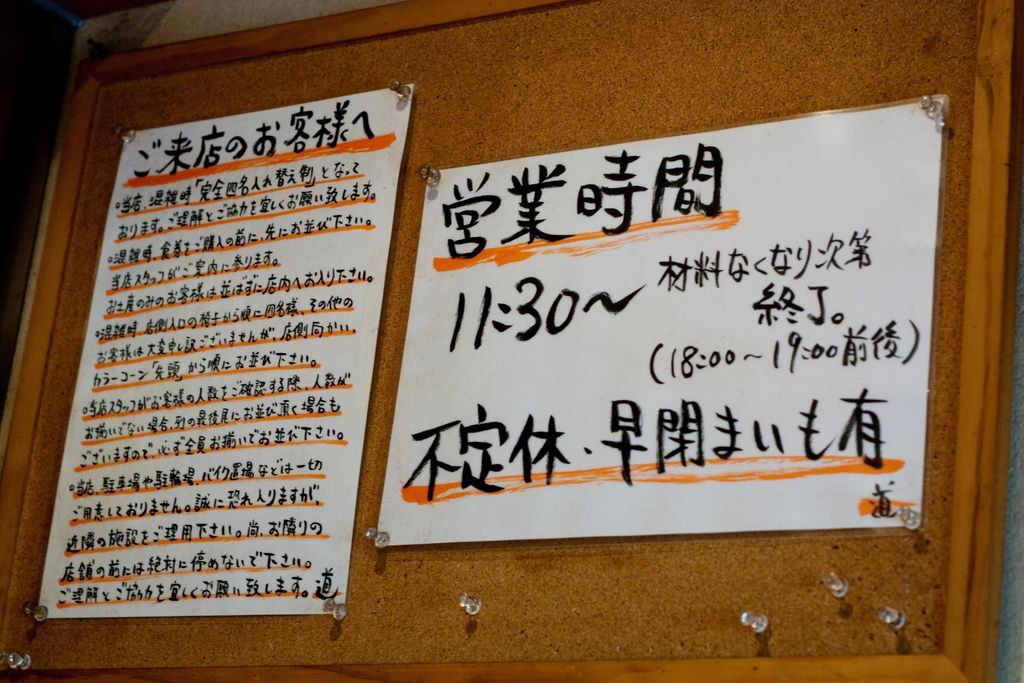 ご来店のお客様へ
○当店、混雑時「完全四名入れ替え制」となって
おります。ご理解とご協力を宜しくお願い致します。
○混雑時、食券をご購入の前に、先にお並び下さい。
当店スタッフがご案内に参ります。
お土産のみのお客様は並ばずに店内へお入り下さい。
○混雑時、店側入口の椅子から順に四名様、その他の
お客様は大変申し訳ございませんが、店側向かい、
カラーコーン「先頭」から順にお並び下さい。
○当店スタッフがお客様の人数をご確認する際、人数が
お揃いでない場合、列の最後尾にお並び頂く場合も
ございますので、必ず全員お揃いでお並び下さい。
○当店、駐車場や駐輪場、バイク置場などは一切
ご用意しておりません。誠に恐れ入りますが、
近隣の施設をご理用下さい。尚、お隣りの
店舗の前には絶対に停めないで下さい。
ご理解とご協力を宜しくお願い致します。道
営業時間
11:30〜 材料なくなり次第
終了。
(18:00〜19:00前後)
不定休、早閉まいも有
道